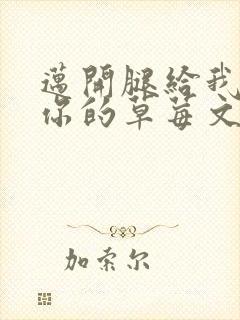 邁開腿給我
你的草莓文
加索尔